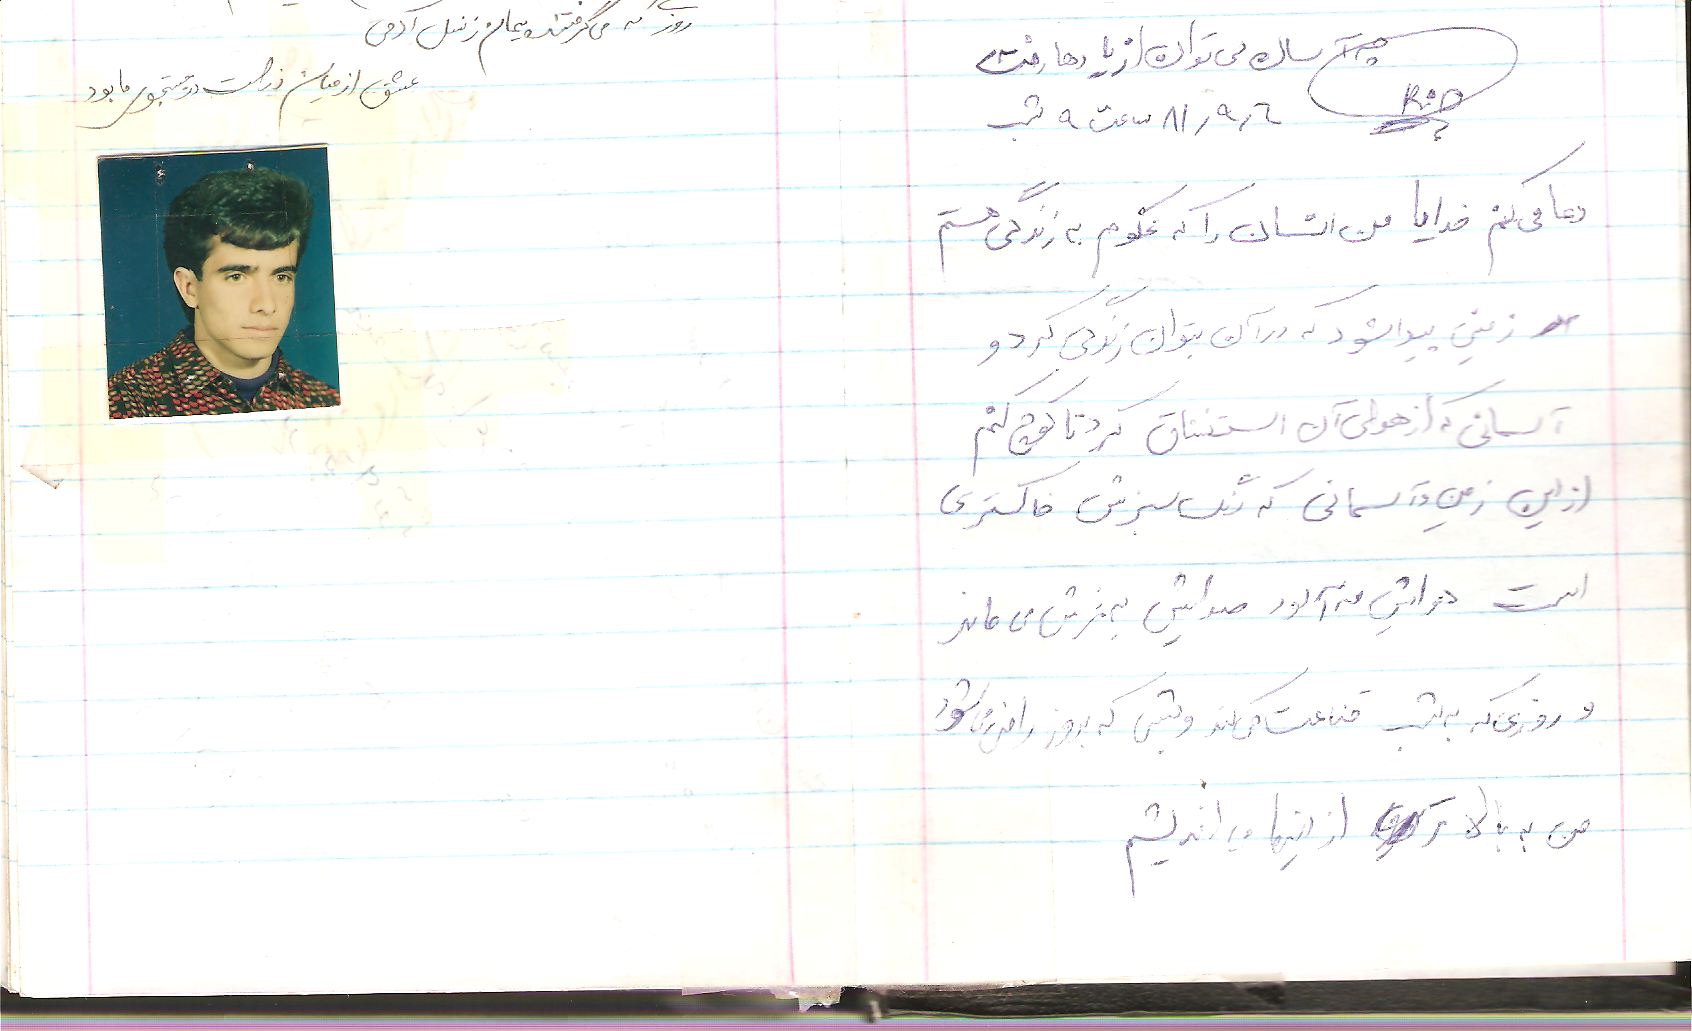 چه آسان می توان از یادها رفت
R:D
۸۱،۹،۶ ساعت ۹ شب
دعا می کنم خدایا من انسان را که محکوم به زندگی هستم
زمینی پیدا شود که در آن بتوان زندگی کرد و
آسمانی که از هوای آن استنشاق کرد تا کوچ کنم
از این زمین و آسمانی که رنگ سبزش خاکستری
است هوایش مه آلود صدایش به غرش می ماند
و روزی که به شب قناعت می کند و شبی که به روز راضی می شود
من به بالاتر از اینها می اندیشم
روزی که می گرفتند پیمان ز نسل آدمی
عشق از میان ذرات در جستجوی ما بود